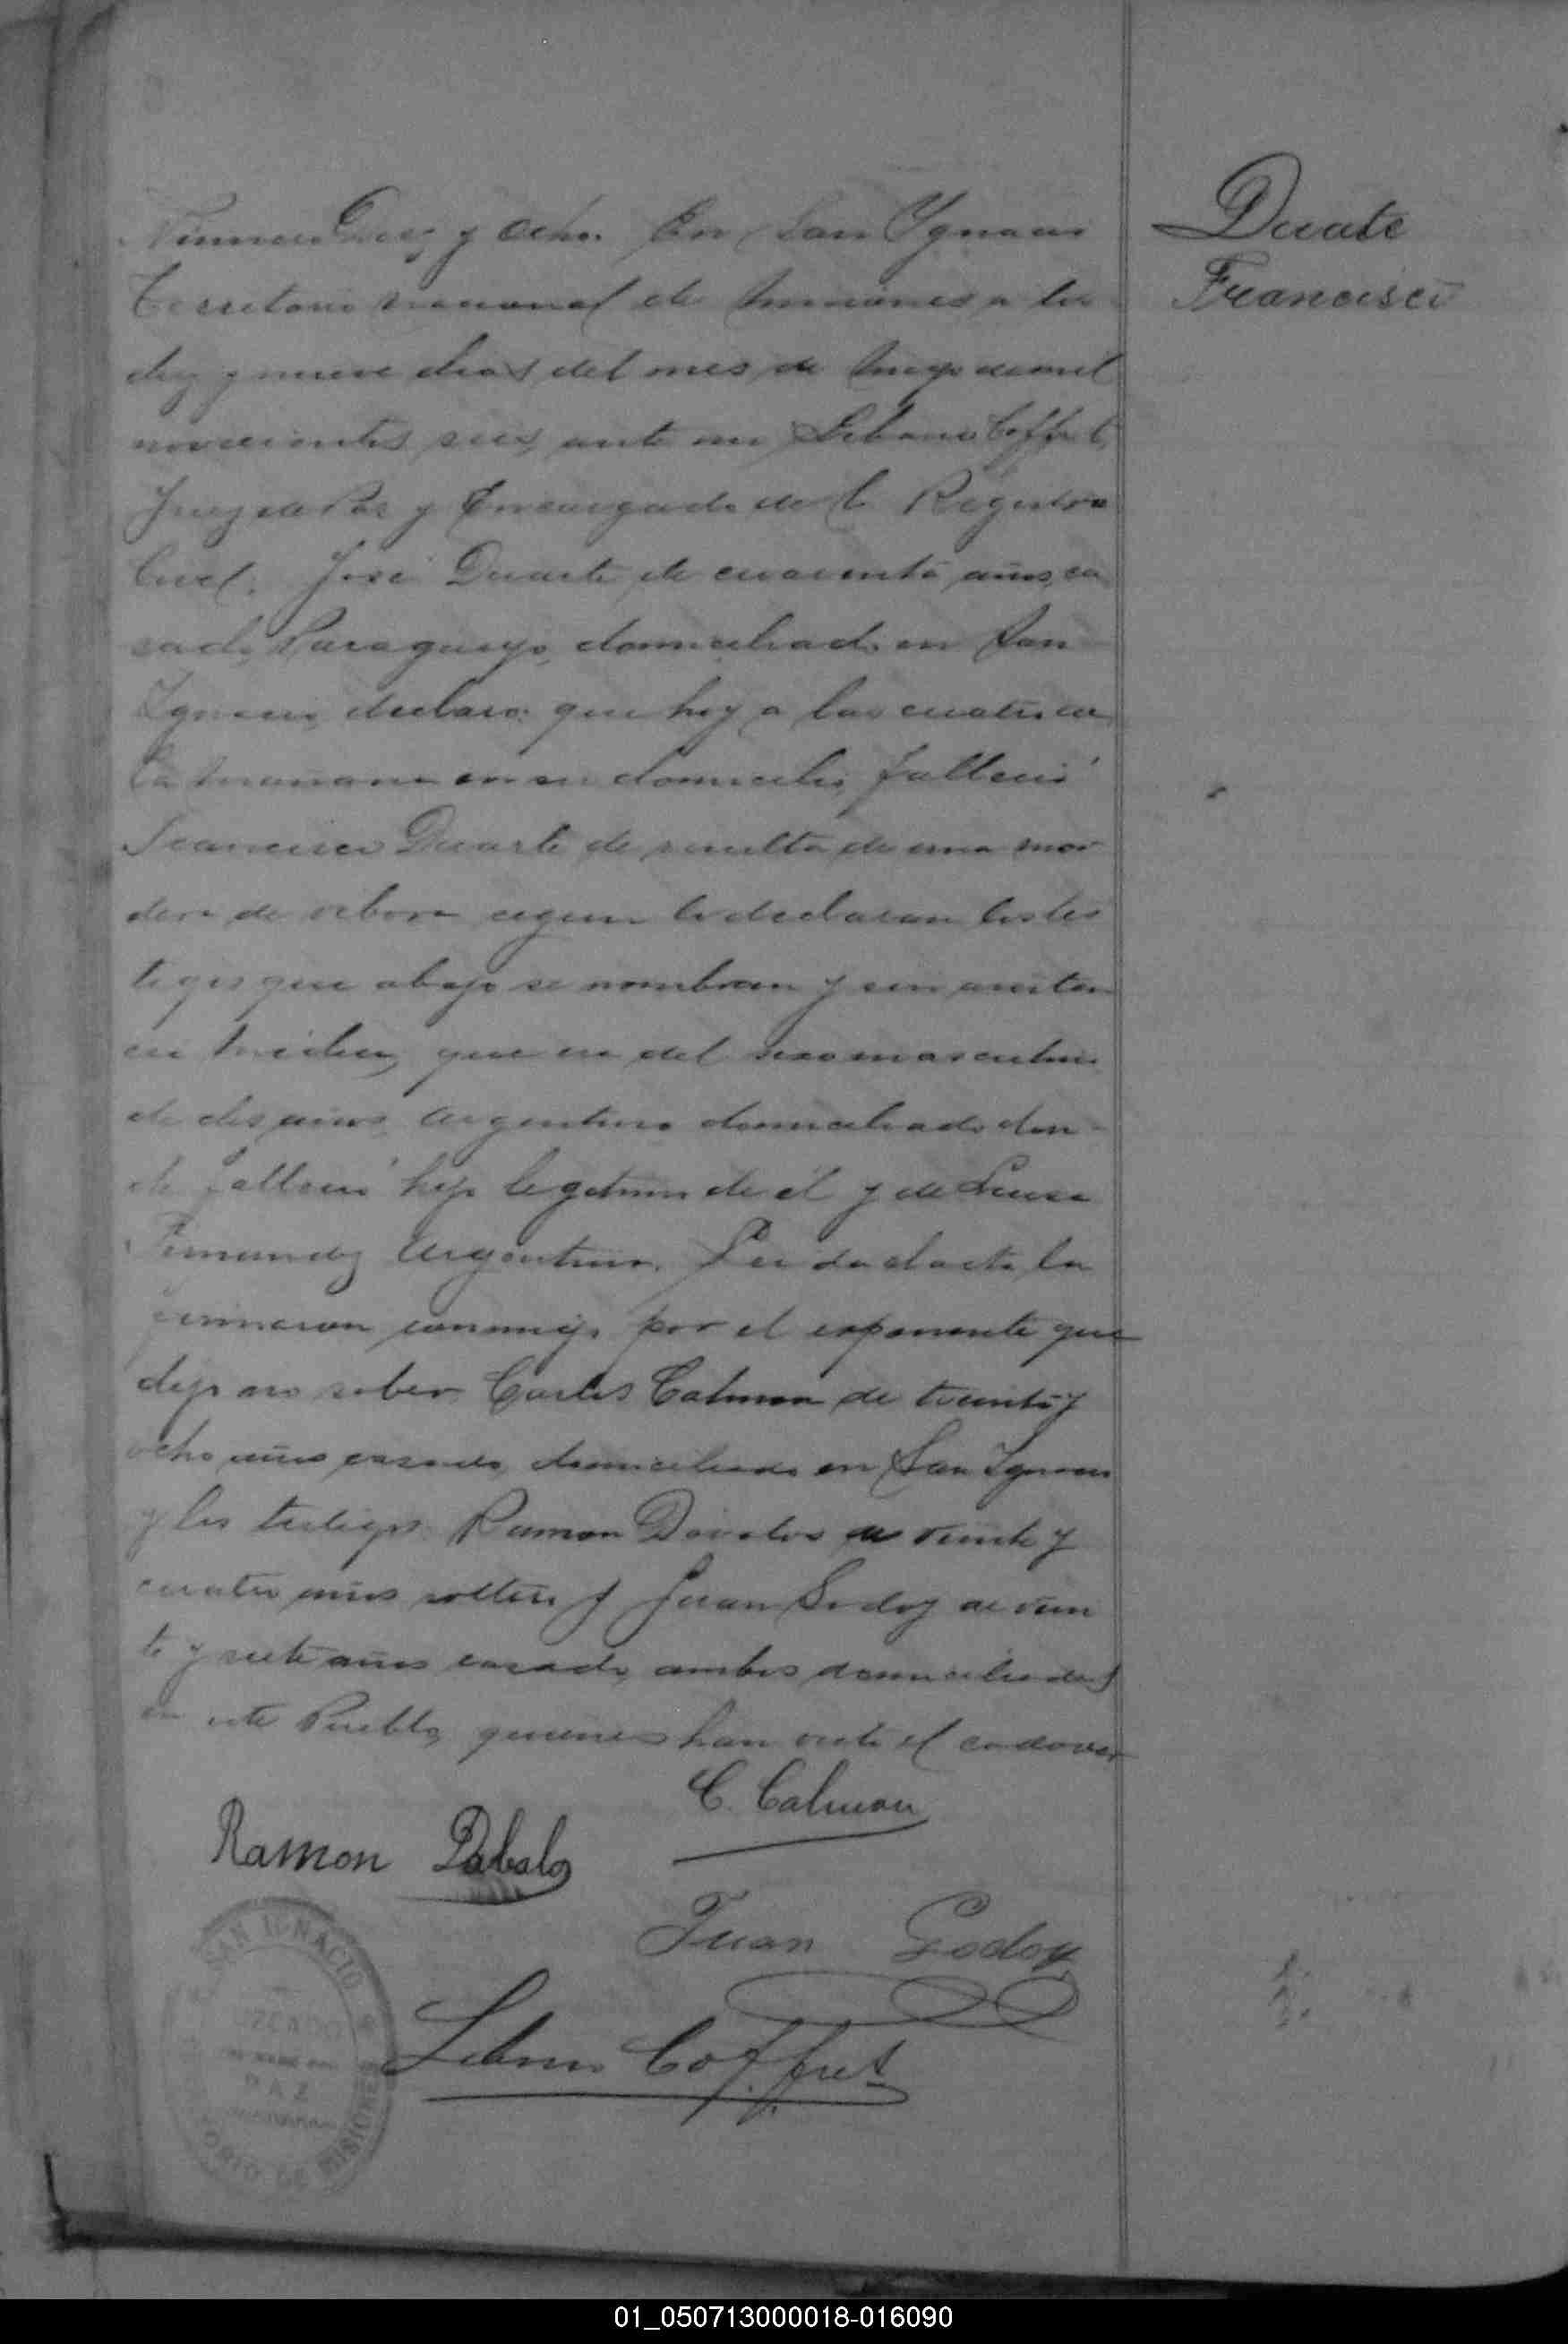 Duarte
Francisco
Numero Diez y Ocho. En San Ygnacio
Territorio nacional de Misiones a los
diez y nueve dias del mes de Mayo de mil
novecientos seis, ante mi Liborio Coffret,
Juez de Paz y Encargado del Registro
Civil. José Duarte de cuarenta años, ca
sado, Paraguayo, domiciliado en San
Ignacio, declaro: que hoy a las cuatro de
la mañana en su domicilio, falleció
Francisco Duarte de resulta de una mor
dera de vibora segun lo declaran los tes
tigos que abajo se nombran y sin asisten
cia medica, que era del sexo masculino
de dos años, Argentino domiciliado don-
de falleció hijo legitimo de él y de Luisa
Fernandez Argentina. Leida el acta la
firmaron conmigo por el exponente que
dijo no saber, Carlos Calmon de treinta y
ocho años casado, domiciliado en San Ignacio
y los testigos Ramon Davalos de veinte y
cuatro años soltero y Juan Godoy de vein
te y siete años casado, ambos domiciliados
en este Pueblo, quienes han visto el cadaver
C. Calmon
Ramon Dabalos
Juan Godoy
Coffret
SAN IGNACIO
PAZ
ORIO DE MISIONES
01_050713000018-016090